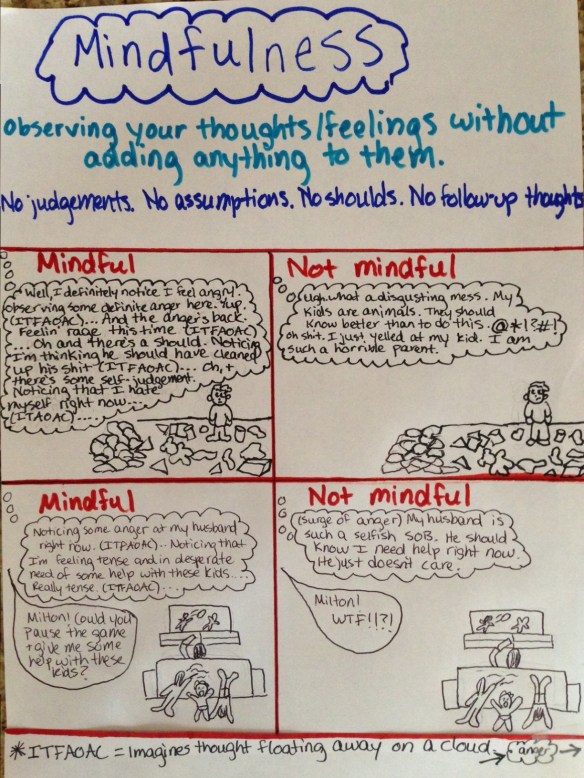 Mindfulness
observing your thoughts/feelings without
adding anything to them.
No judgements. No assumptions. No shoulds. No follow-up thoughts
Mindful
Well, I definitely notice I feel angry.
observing some definite anger here. Yup.
(ITFAOAC)... And the anger's back.
Feelin' rage this time (ITFAOAC)
... Oh and there's a should. Noticing
I'm thinking he should have cleaned
up his shit (ITFAOAC)... Oh, +
there's some self-judgement.
Noticing that I hate
myself right now...
(ITAOAC)....
Not mindful
Ugh. what a disgusting mess. My
kids are animals. They should
know better than to do this. @*!?#!
oh shit. I just yelled at my kid. I am
such a horrible parent.
Mindful
Noticing some anger at my husband
right now. (ITFAOAC)... Noticing that
I'm feeling tense and in desperate
need of some help with these kids...
Really tense. (ITFAOAC)...
Milton! Could you
pause the game
+ give me some
help with these
kids?
Not mindful
(surge of anger) My husband is
such a selfish SOB. He should
know I need help right now.
He just doesn't care.
Milton!
WTF!!?!
*ITFAOAC = Imagines thought floating away on a cloud.
anger